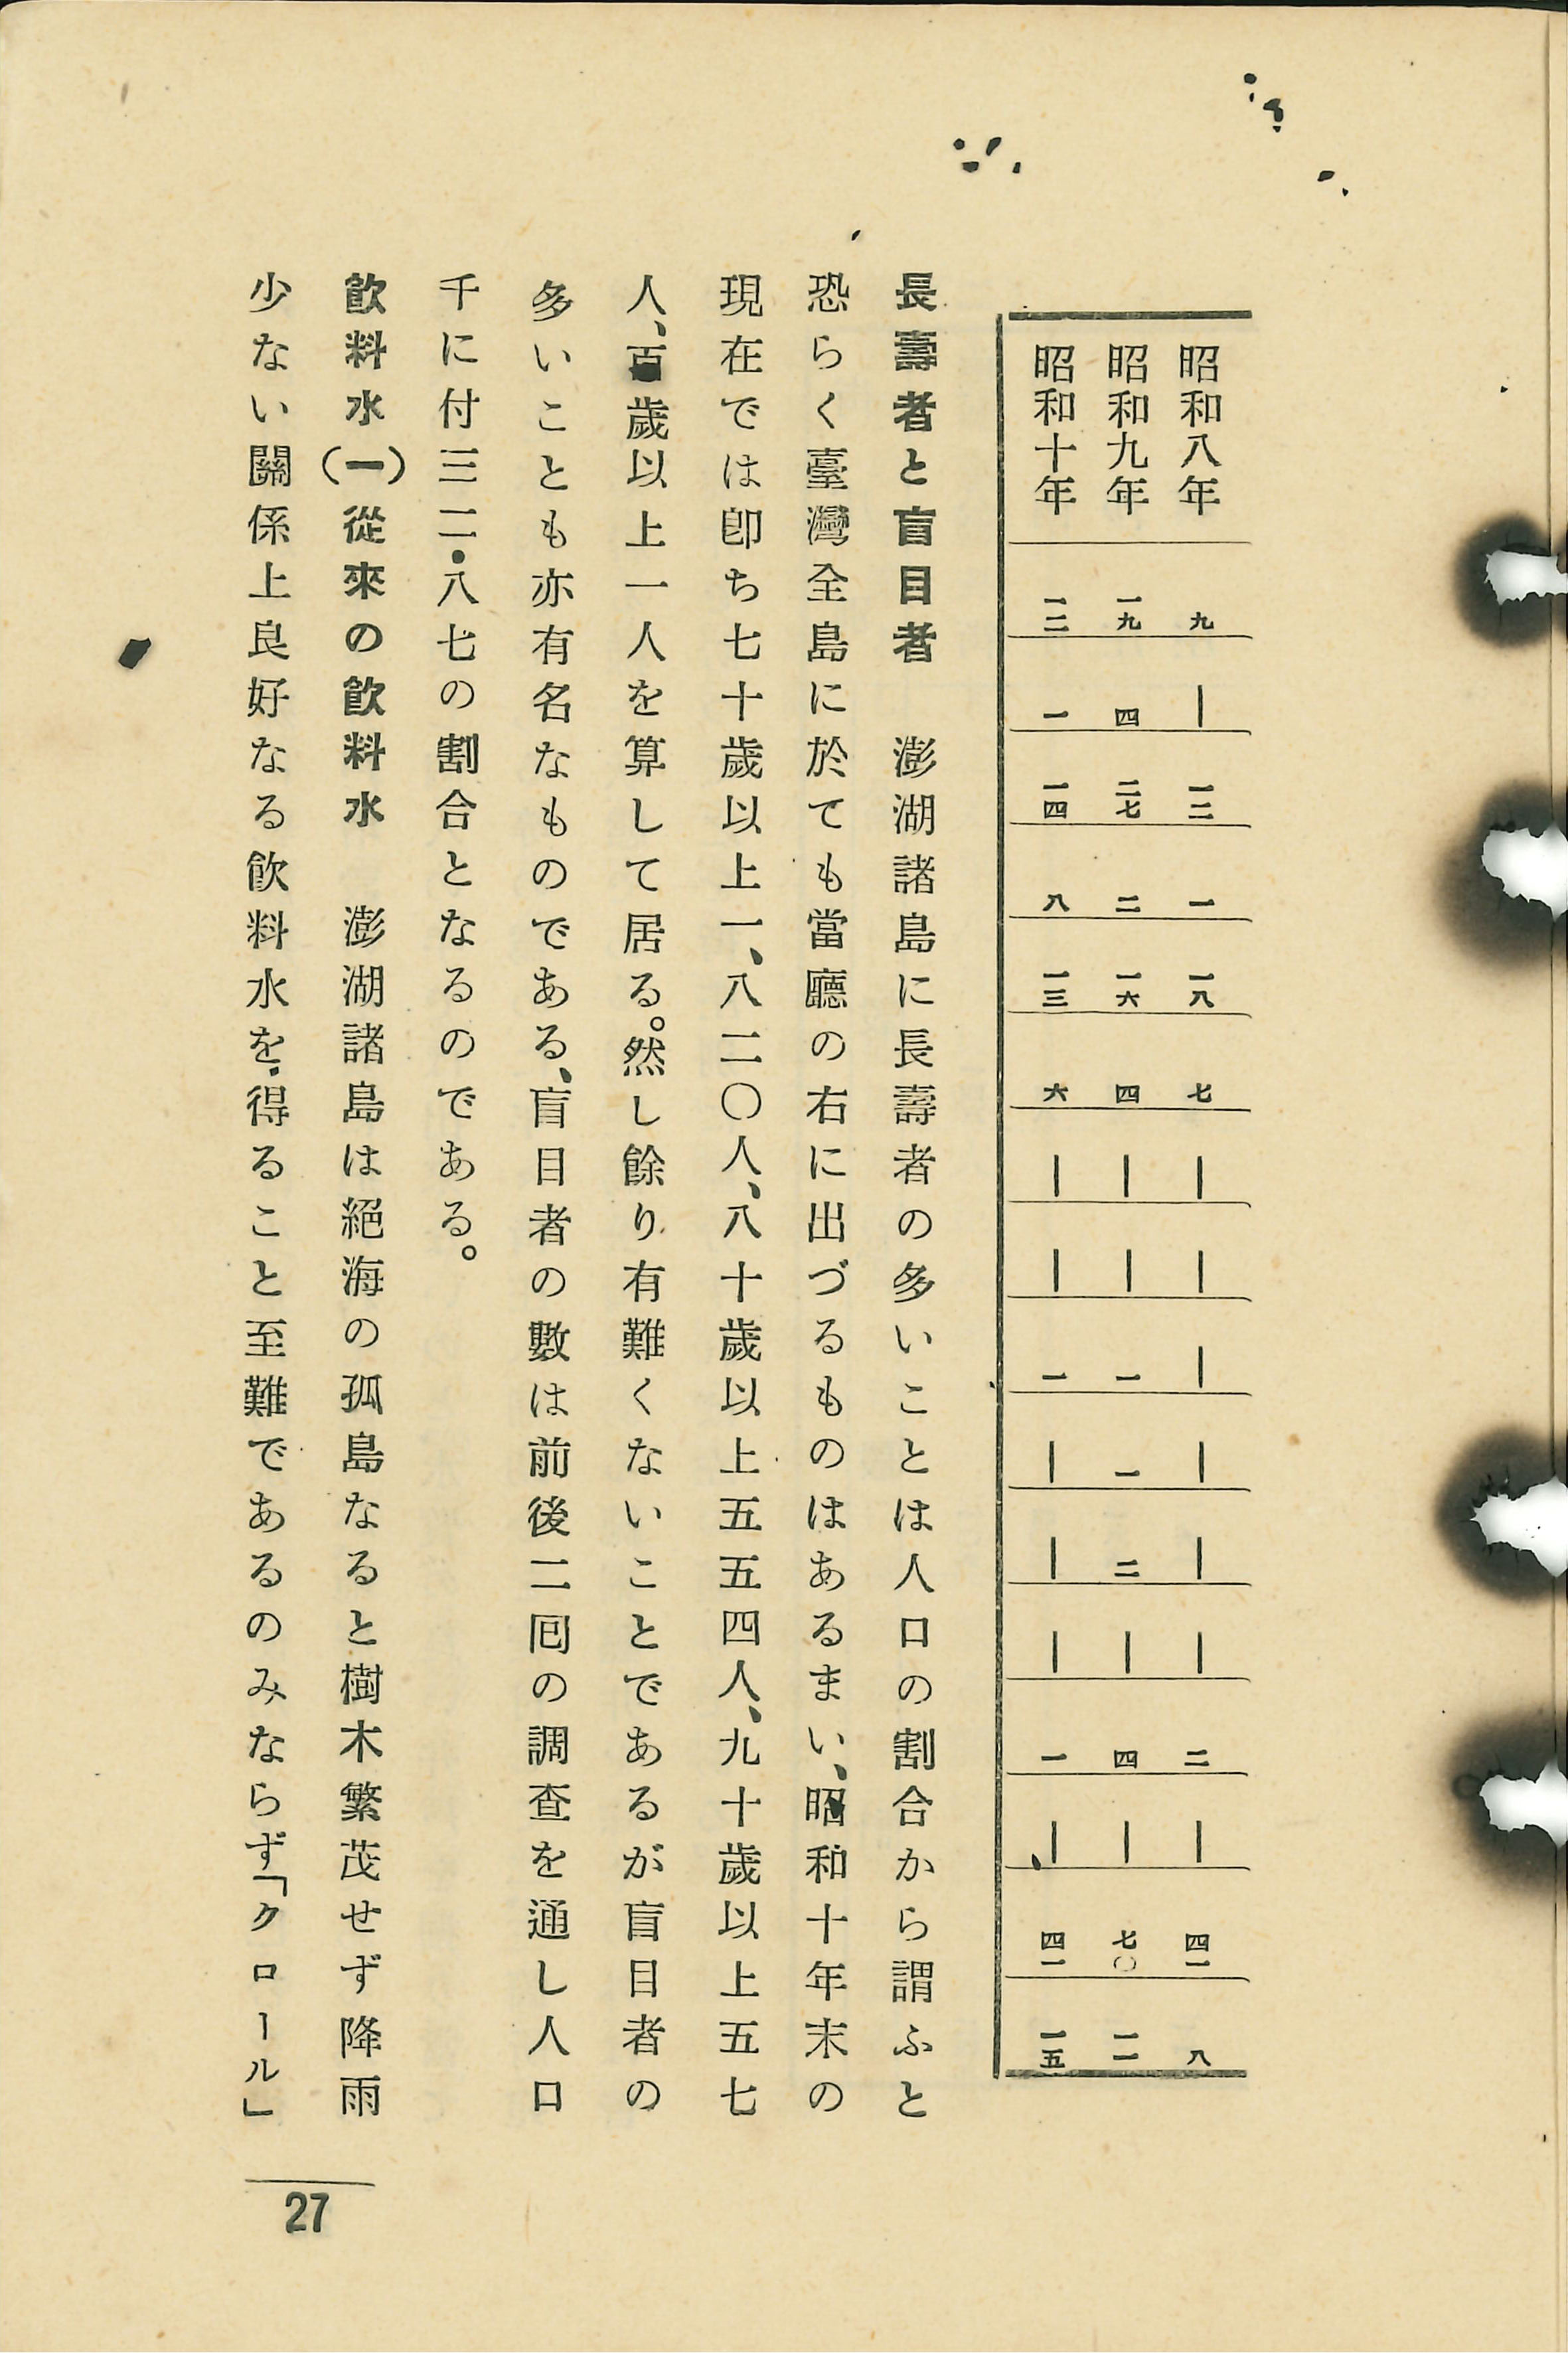 昭和八年 九 ー 一二 一 一八 七 ー ー ー ー ー ー 二 ー 四一 八
昭和九年 一九 四 二七 二 一六 四 ー ー 一 一 二 ー 四 ー 七〇 一一
昭和十年 一二 一 一四 八 一三 六 ー ー 一 ー ー ー 一 ー 四一 一五
長壽者と盲目者　澎湖諸島に長壽者の多いことは人口の割合から謂ふと
恐らく臺灣全島に於ても當廳の右に出づるものはあるまい、昭和十年末の
現在では卽ち七十歲以上一、八二〇人、八十歲以上五五四人、九十歲以上五七
人、百歲以上一人を算して居る。然し餘り有難くないことであるが盲目者の
多いことも亦有名なものである、盲目者の數は前後二囘の調査を通し人口
千に付三二・八七の割合となるのである。
飮料水（一）從來の飮料水　澎湖諸島は絕海の孤島なると樹木繁茂せず降雨
少ない關係上良好なる飮料水を得ること至難であるのみならず「クロール」
27